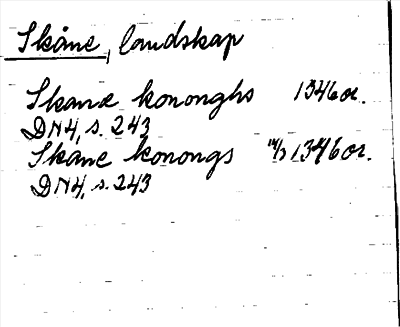 Skåne, landskap
Skanæ kononghs 1346 or.
DN4, s. 243
Skane konongs 14/3 1346 or.
DN4, s. 243